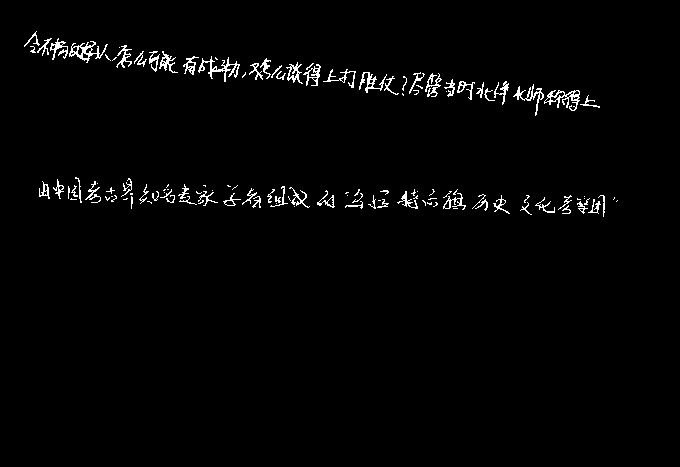 令不畅的军队怎么可能有战斗力,又怎么谈得上打胜仗?尽管当时北洋水师称得上
由中国考古界知名专家学者组成的"巡托特示旗历史文化考察团"